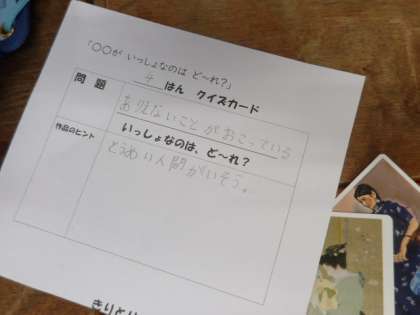 「〇〇が いっしょなのは ど〜れ？」
4 はん クイズカード
問題
ありえないことがおこっている
いっしょなのは、ど〜れ？
作品のヒント
とうめい人間がいそう。
きりとり